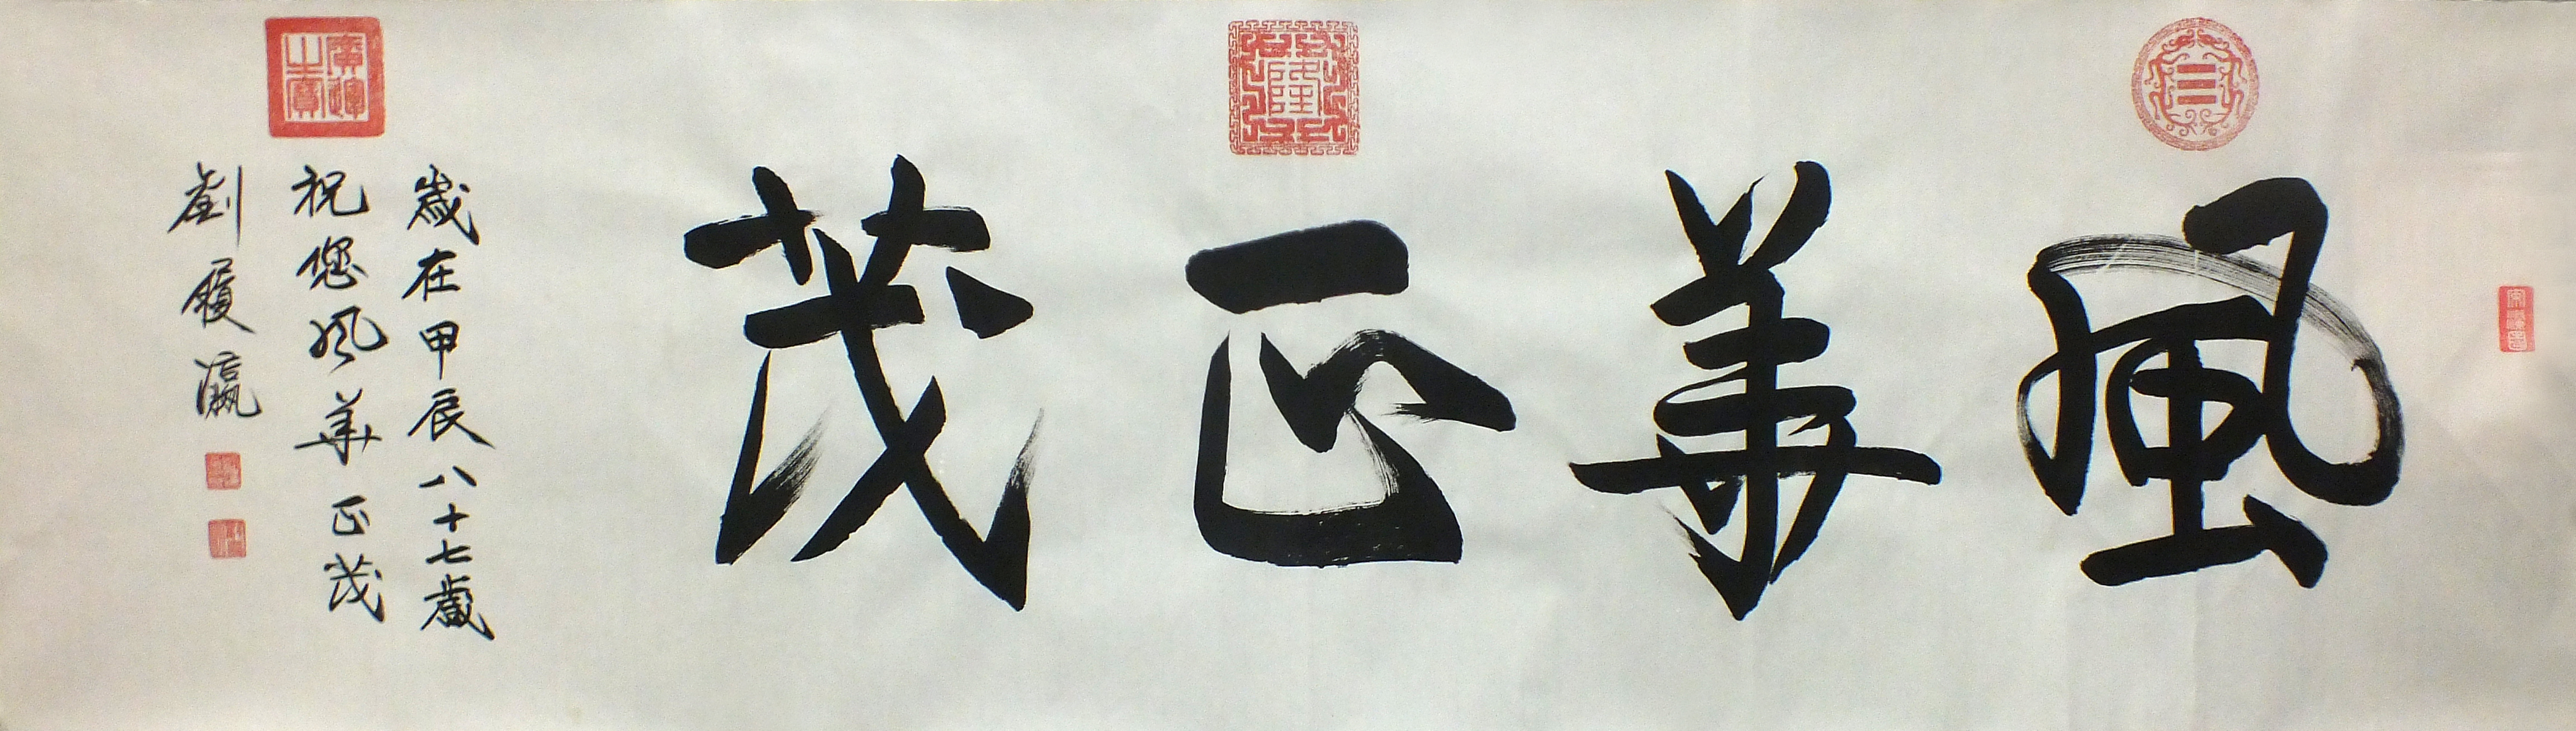 風華正茂
歲在甲辰八十七歲
祝您風華正茂
劉履瀛